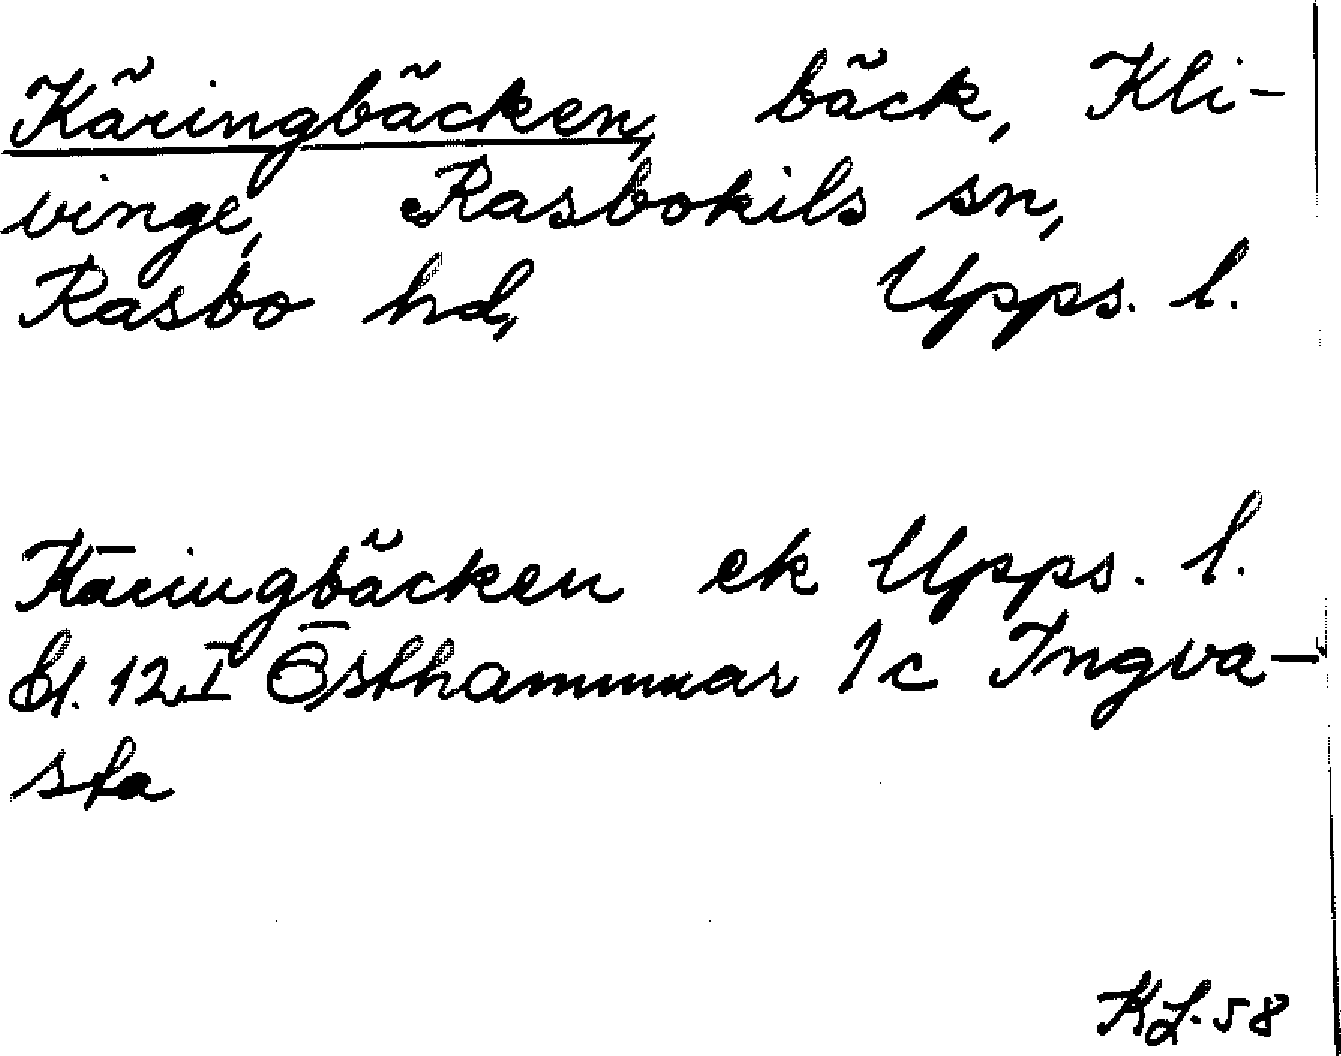 Käringbäcken, bäck, Kli-
vinge, Rasbokils sn,
Rasbo hd, Upps. l.
Käringbäcken ek Upps. l.
bl. 12 I Östhammar 1c Ingva-
sta
KL. 58